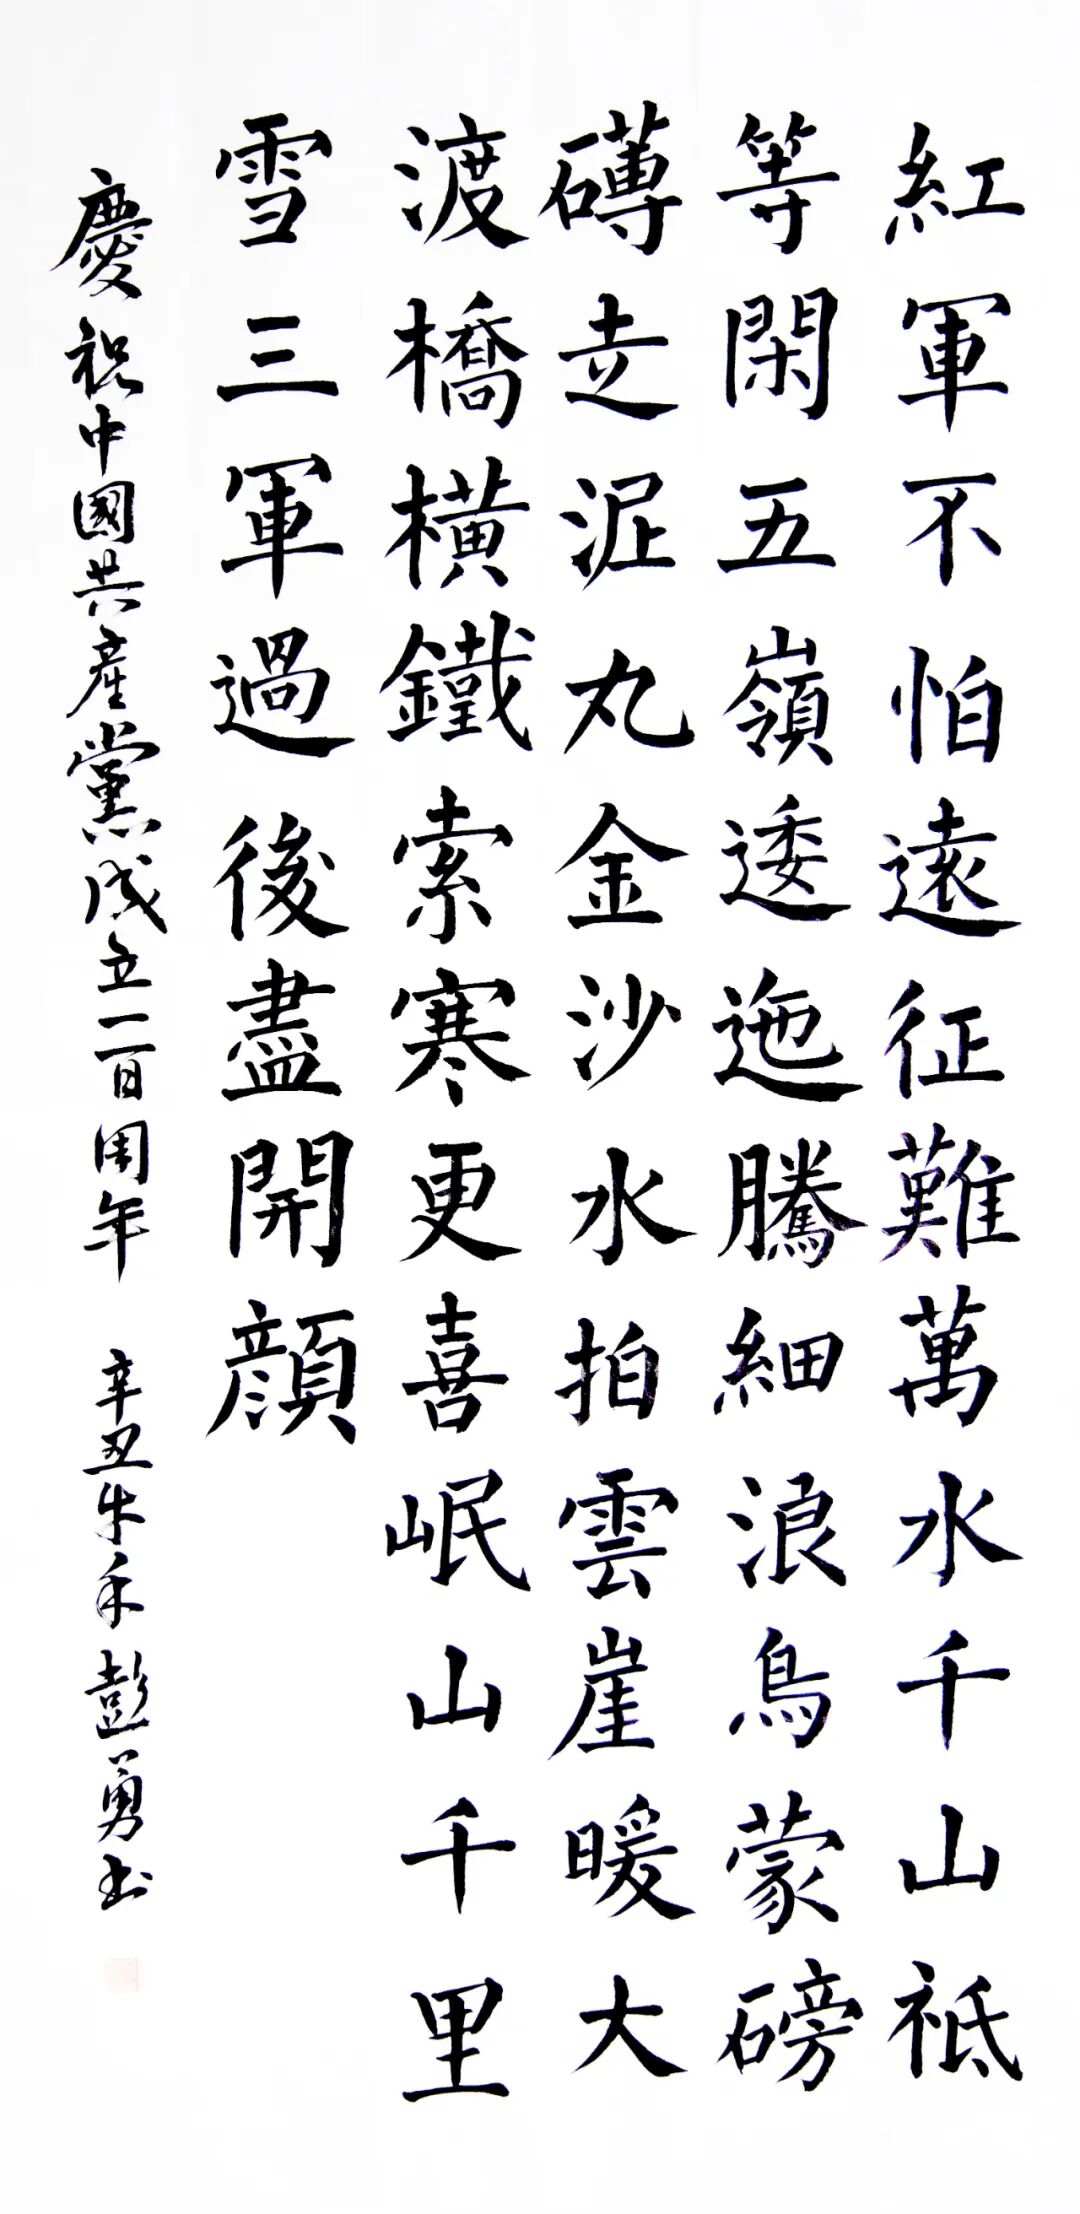 紅軍不怕遠征難萬水千山祗
等閑五嶺逶迤騰細浪烏蒙磅
礴走泥丸金沙水拍雲崖暖大
渡橋橫鐵索寒更喜岷山千里
雪三軍過後盡開顏
慶祝中國共產黨成立一百周年 辛丑牛年彭勇书